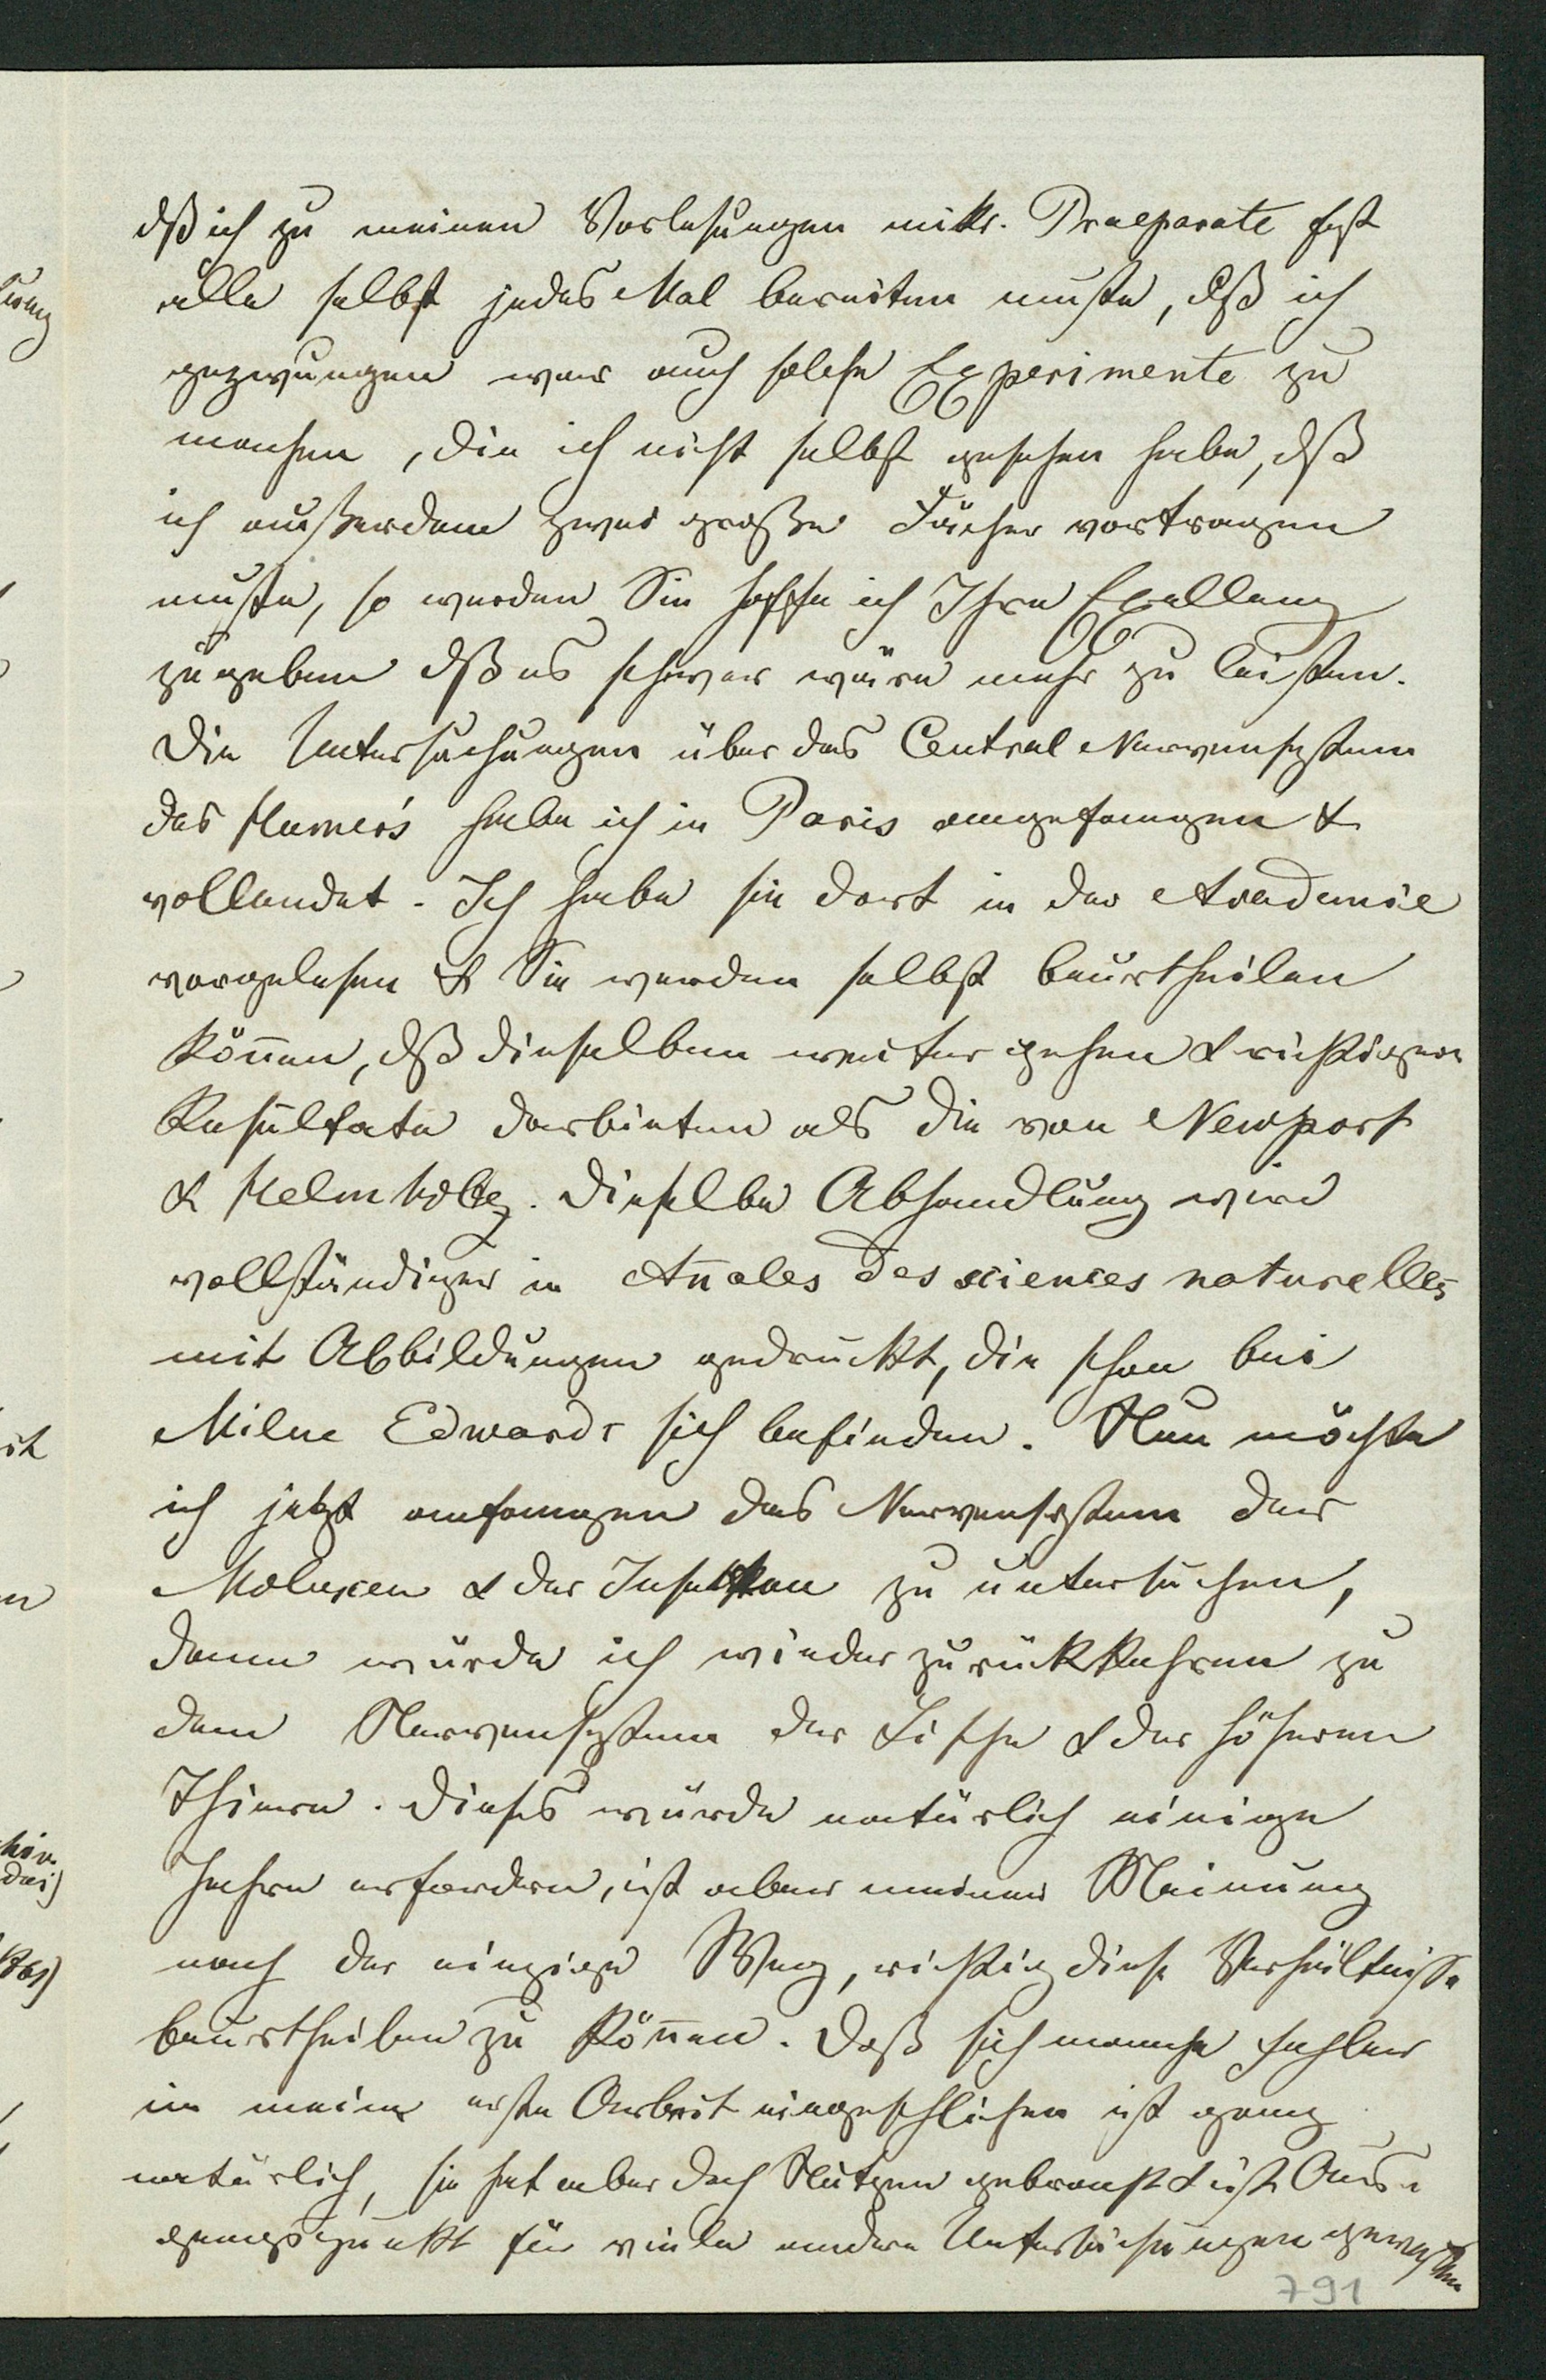 dß ich zu meinen Vorlesungen mikr. Praeparate fast
alle selbst jedes Mal bereiten muste, dß ich
gezwungen war auch solche Experimente zu
machen, die ich nicht selbst gesehen habe, dß
ich außerdem zwei große Fächer vortragen
muste, so werden Sie hoffe ich Ihre Exellenz
zugeben dß es schwer wäre mehr zu leisten.
Die Untersuchungen über das Central Nervensystem
des Humers habe ich in Paris angefangen &
vollendet. Ich habe sie dort in der Academie
vorgelesen & Sie werden selbst beurtheilen
kön̄en, dß dieselben weiter gehen & richtigere
Resultate darbieten als die von Newport
& Helmholtz. Dieselbe Abhandlung wird
vollständiger in An̄ales des sciences naturelles
mit Abbildungen gedruckt, die schon bei
Milne Edwards sich befinden. Nun möchte
ich jetzt anfangen das Nervensystem der
Molusken & der Insekten zu untersuchen,
dann würde ich wieder zurückkehren zu
dem Nervensystem der Fische & der höheren
Thiere. Dieses würde natürlich einige
Jahre erfordern, ist aber meiner Meinung
nach der einzige Weg, richtig diese Verhältnisse
beurtheilen zu kön̄en. Daß sich manche Fehler
in meine erste Arbeit eingeschlichen ist ganz
natürlich, sie hat aber doch Nutzen gebracht & ist Aus-
gangspunkt für viele andere Untersuchungen gewesen
791